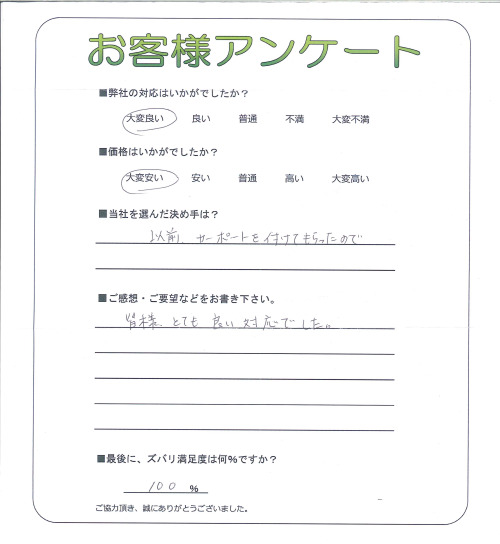 お客様アンケート
■弊社の対応はいかがでしたか？
大変良い 良い 普通 不満 大変不満
■価格はいかがでしたか？
大変安い 安い 普通 高い 大変高い
■当社を選んだ決め手は？
以前、カーポートを付けてもらったので
■ご感想・ご要望などをお書き下さい。
皆様、とても良い対応でした。
■最後に、ズバリ満足度は何%ですか？
100 %
ご協力頂き、誠にありがとうございました。